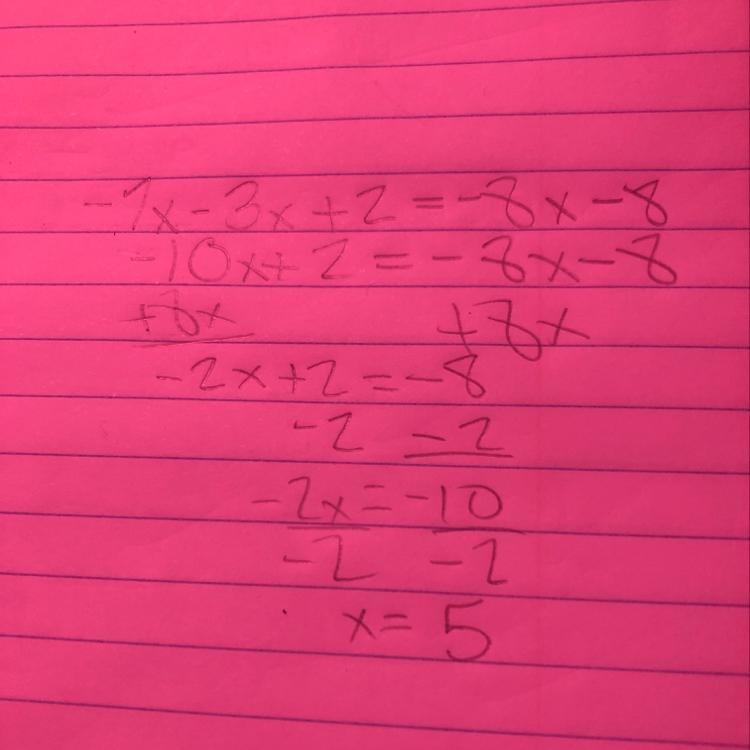 -7x-3x+2=-8x-8
-10x+2=-8x-8
+8x +8x
-2x+2=-8
-2 -2
-2x=-10
-2 -2
x=5